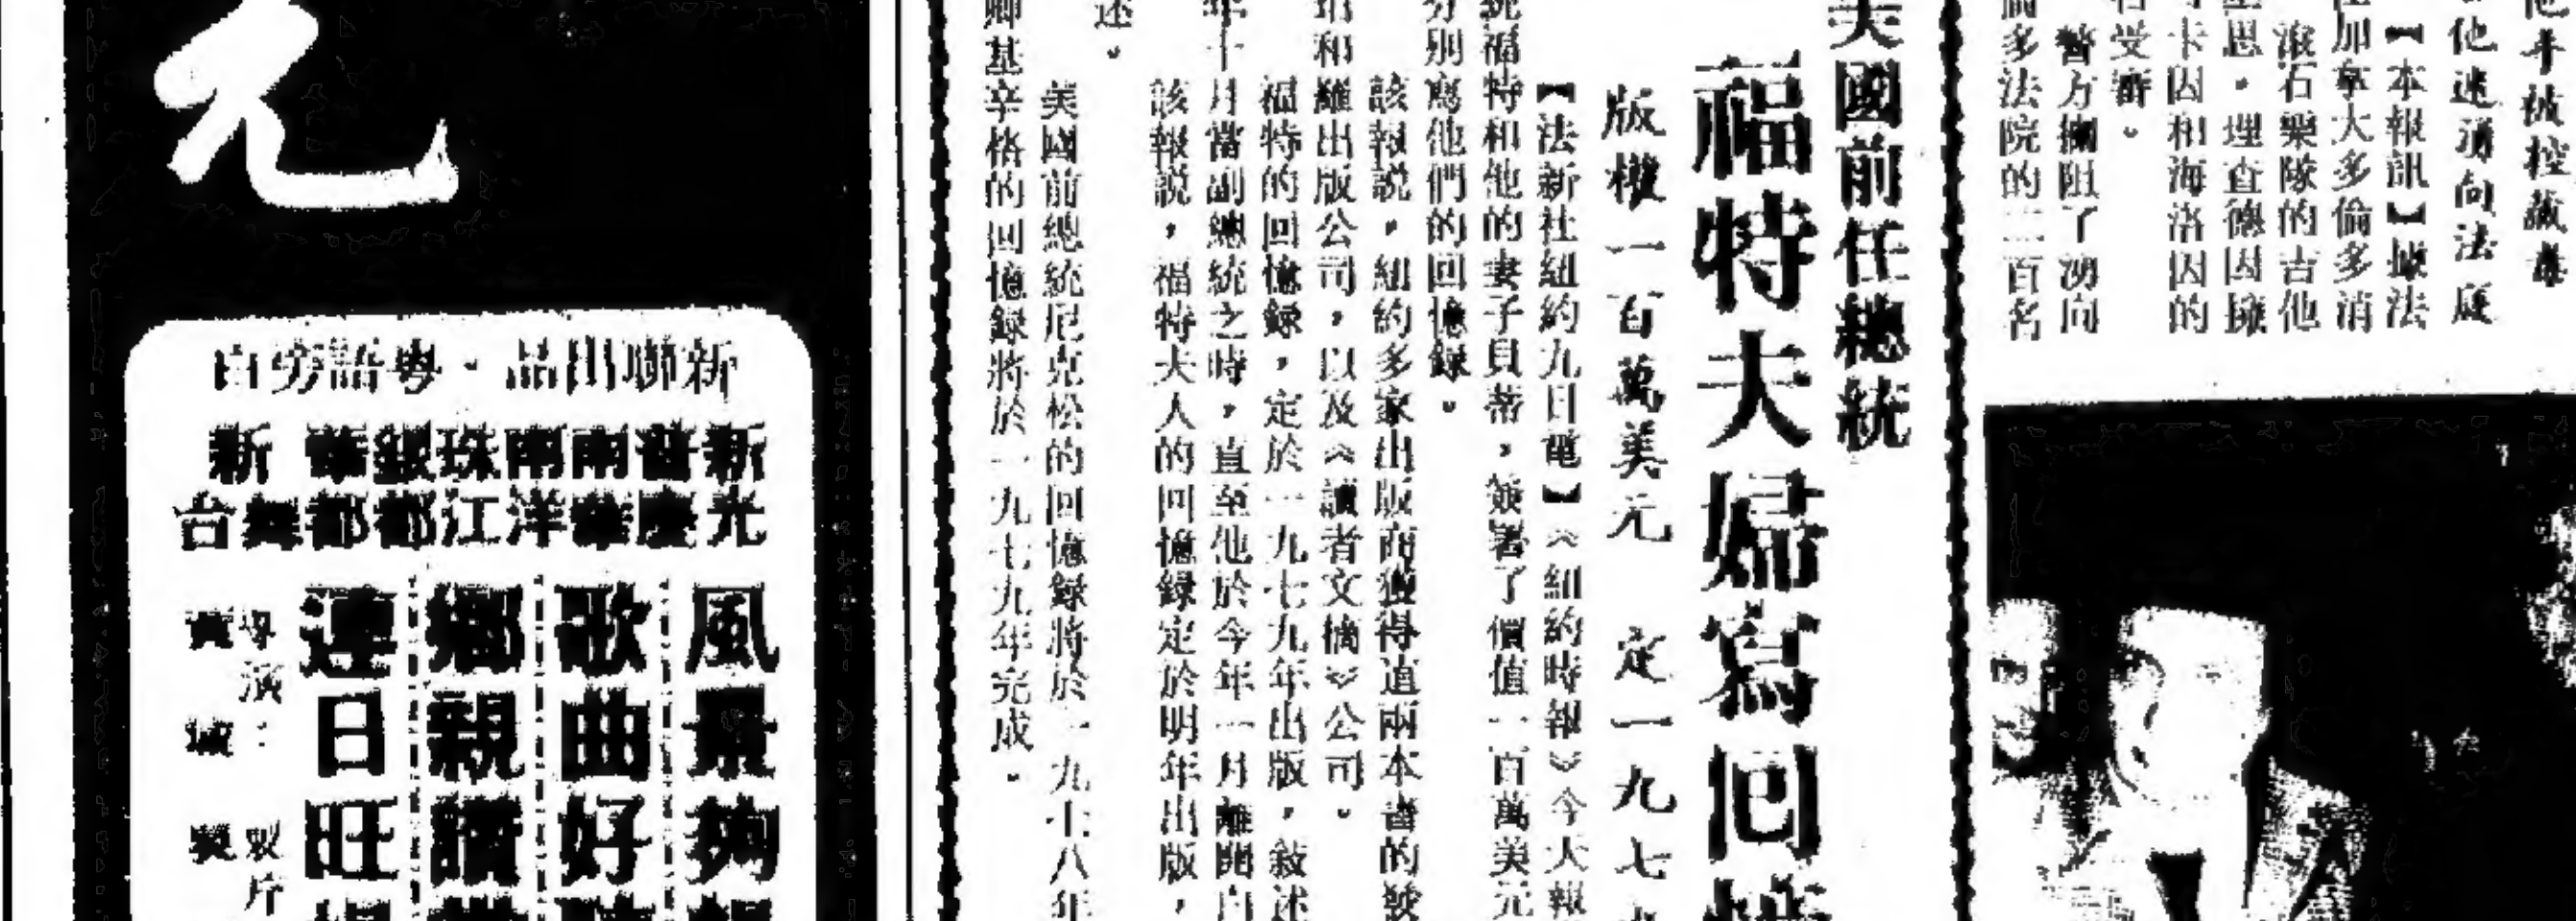 他手被控藏毒
他送湧向法庭
【本報訊】據法
加拿大多倫多消
滾石樂隊的吉他
思·理查德因擁
卡因和海洛因的
受審。
警方攔阻了湧向
多法院的二百名
美國前任總統
福特夫婦寫回憶
版權一百萬美元 定一九七九
【法新社紐約九日電】《紐約時報》今天報
統福特和他的妻子貝蒂，簽署了價值一百萬美元
分別寫他們的回憶録。
該報説，紐約多家出版商獲得這兩本書的發
和羅出版公司，以及《讀者文摘》公司。
福特的回憶録，定於一九七九年出版，敍述
年十月當副總統之時，直至他於今年一月離開白
該報説，福特夫人的回憶録定於明年出版，
述。
美國前總統尼克松的回憶録將於一九七八年
卿基辛格的回憶録將於一九七九年完成。
元
新聯出品·粵語旁白
新光
普慶
南華
南洋
珠江
銀都
華都
新舞台
風景夠
歌曲好聽
鄉親讚
連日旺
導演：